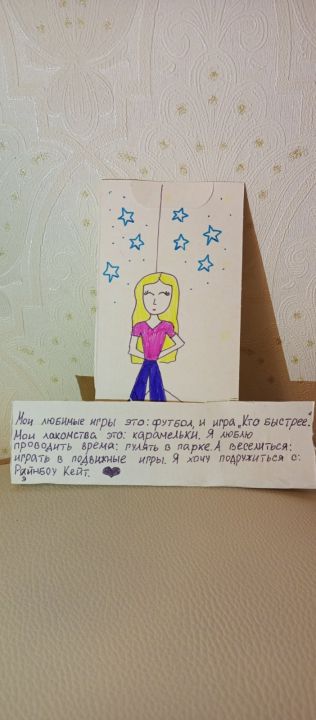 Мои любимые игры это: футбол, и игра „Кто быстрее."
Мои лакомства это: карамельки. Я люблю
проводить время: гулять в парке. А веселиться:
играть в подвижные игры. Я хочу подружиться с:
Рэйнбоу Кейт.